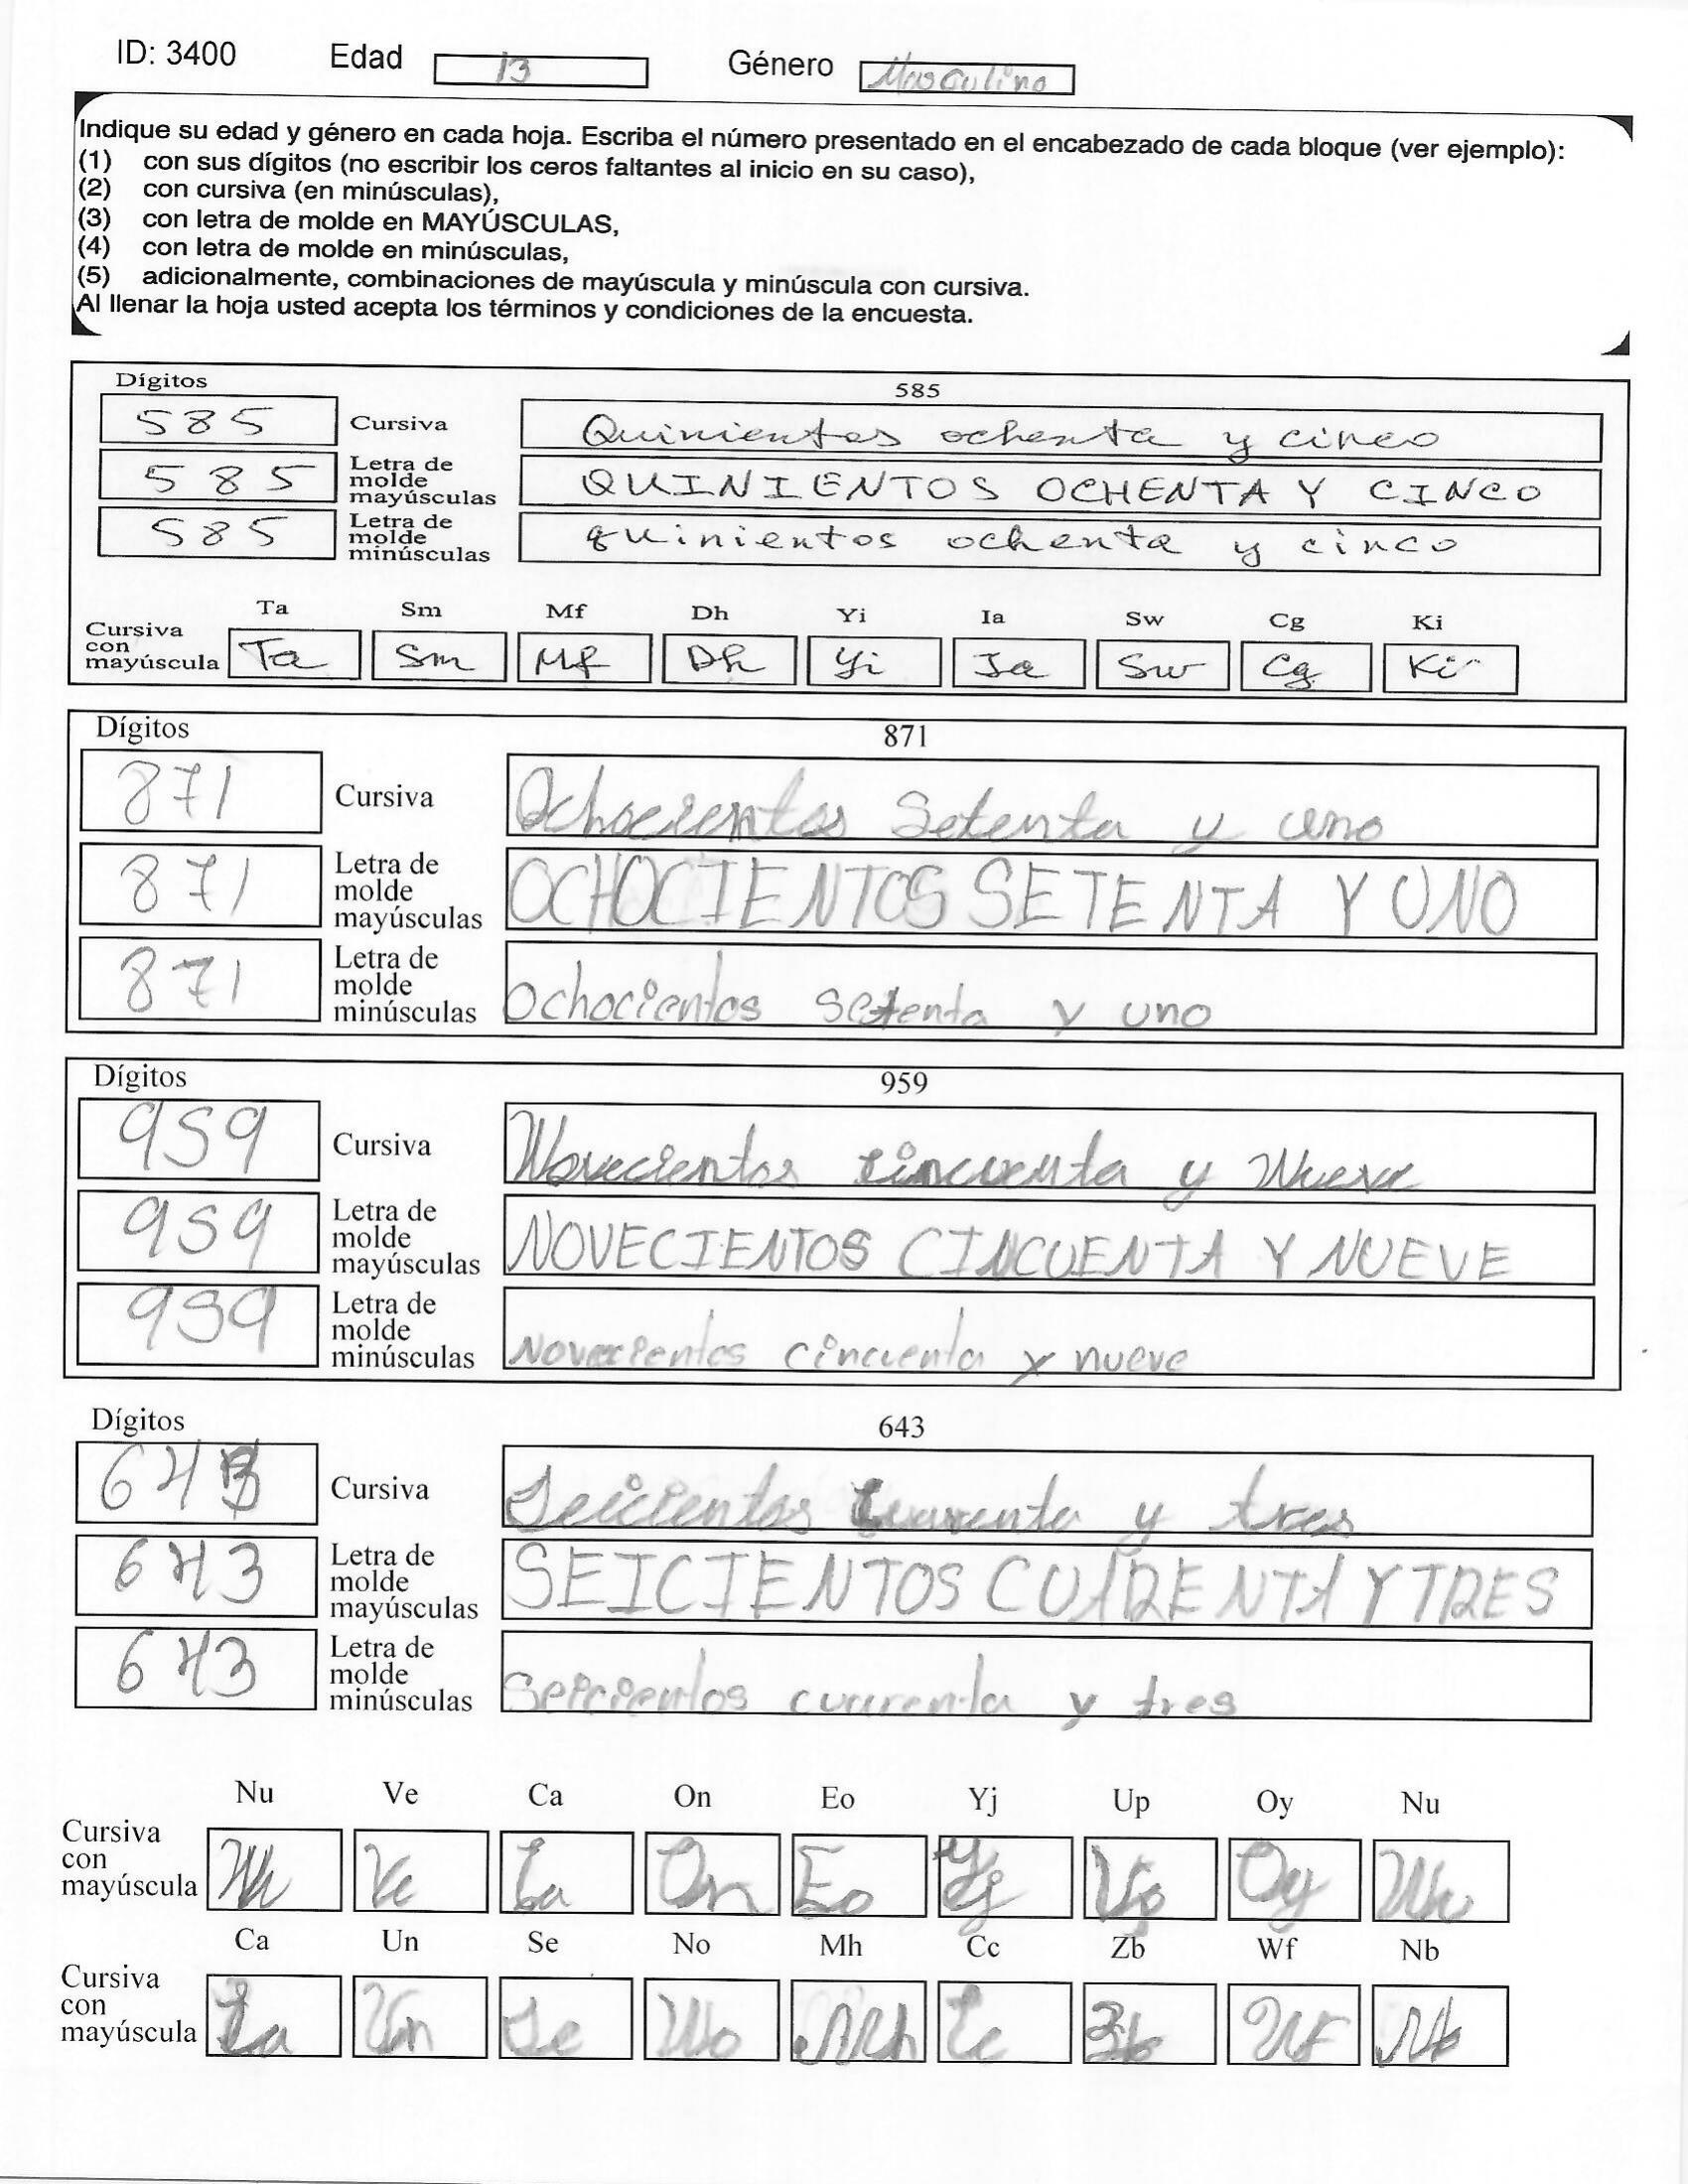 ID: 3400 Edad 13 Género Masculino
Indique su edad y género en cada hoja. Escriba el número presentado en el encabezado de cada bloque (ver ejemplo):
(1) con sus dígitos (no escribir los ceros faltantes al inicio en su caso),
(2) con cursiva (en minúsculas),
(3) con letra de molde en MAYÚSCULAS,
(4) con letra de molde en minúsculas,
(5) adicionalmente, combinaciones de mayúscula y minúscula con cursiva.
Al llenar la hoja usted acepta los términos y condiciones de la encuesta.
Dígitos 585
585 Cursiva Quinientos ochenta y cinco
585 Letra de molde mayúsculas QUINIENTOS OCHENTA Y CINCO
585 Letra de molde minúsculas quinientos ochenta y cinco
Ta Sm Mf Dh Yi Ia Sw Cg Ki
Cursiva con mayúscula Ta Sm Mf Dh Yi Ia Sw Cg Ki
Dígitos 871
871 Cursiva Ochocientos Setenta y uno
871 Letra de molde mayúsculas OCHOCIENTOS SETENTA Y UNO
871 Letra de molde minúsculas Ochocientos setenta y uno
Dígitos 959
959 Cursiva Novecientos cincuenta y Nueve
959 Letra de molde mayúsculas NOVECIENTOS CINCUENTA Y NUEVE
959 Letra de molde minúsculas Novecientos cincuenta y nueve
Dígitos 643
643 Cursiva Seicientos cuarenta y tres
643 Letra de molde mayúsculas SEICIENTOS CUARENTA Y TRES
643 Letra de molde minúsculas Seicientos cuarenta y tres
Nu Ve Ca On Eo Yj Up Oy Nu
Cursiva con mayúscula Nu Ve Ca On Eo Yj Up Oy Nu
Ca Un Se No Mh Cc Zb Wf Nb
Cursiva con mayúscula Ca Un Se No Mh Cc Zb Wf Nb